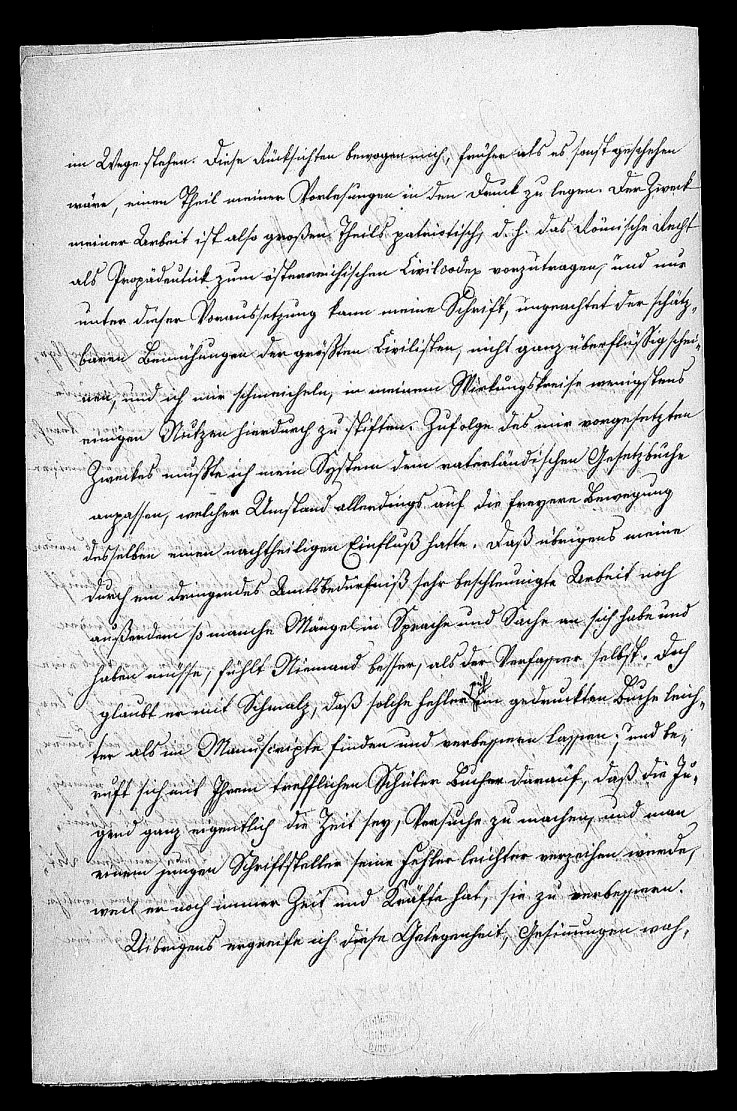 im Wege stehen. Diese Rücksichten bewogen mich, früher als es sonst geschehen
wäre, einen Theil meiner Vorlesungen in den Druck zu legen. Der Zweck
meiner Arbeit ist also großen Theils patriotisch, d. h. das Römische Recht
als Propädeutik zum österreichischen Civilcodex vorzutragen, und nur
unter dieser Voraussetzung kann meine Schrift, ungeachtet der schätz-
baren Bemühungen der größten Civilisten, nicht ganz überflüssig schei-
nen, und ich mir schmeicheln, in meinem Wirkungskreise wenigstens
einigen Nutzen hierdurch zu stiften. Zufolge des mir vorgesetzten
Zweckes mußte ich mein System dem vaterländischen Gesetzbuche
anpassen, welcher Umstand allerdings auf die freyere Bewegung
desselben einen nachtheiligen Einfluß hatte. Daß übrigens meine
durch ein dringendes Amtsbedürfniß sehr beschleunigte Arbeit noch
außerdem so manche Mängel in Sprache und Sache an sich habe und
haben müsse, fühlt Niemand besser, als der Verfasser selbst. Doch
glaubt er mit Schmalz, daß solche Fehler sich im gedruckten Buche leich-
ter als im Manuscripte finden und verbessern lassen; und be-
ruft sich mit Ihrem trefflichen Schüler Bucher darauf, daß die Ju-
gend ganz eigentlich die Zeit sey, Versuche zu machen, und man
einem jungen Schriftsteller seine Fehler leichter verzeihen werde,
weil er noch immer Zeit und Kräfte hat, sie zu verbessern.
Uibrigens ergreife ich diese Gelegenheit, Gesinnungen wah-